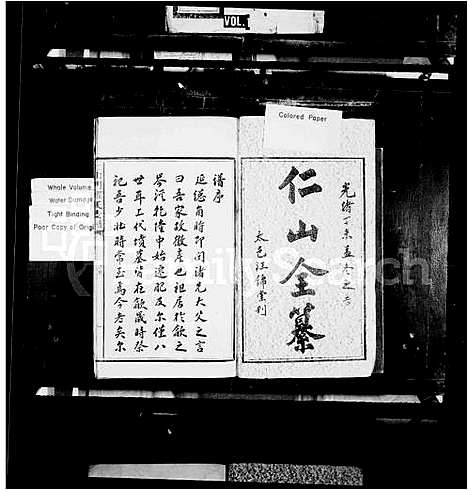 VOL.
Colored Paper
Whole Volume
Water Damage
Tight Binding
Poor Copy of Origi
光緒丁未孟冬之吉
仁山全纂
太邑汪錦雲刊
譜序
延緦角時即聞諸先大父之言
曰吾家故徽產也祖居於歙之
岑從乾隆中始遷肥及尔僅八
世耳上代墳墓皆在歙歲時祭
記吾少壯時常至焉今老矣尔
FamilySearch